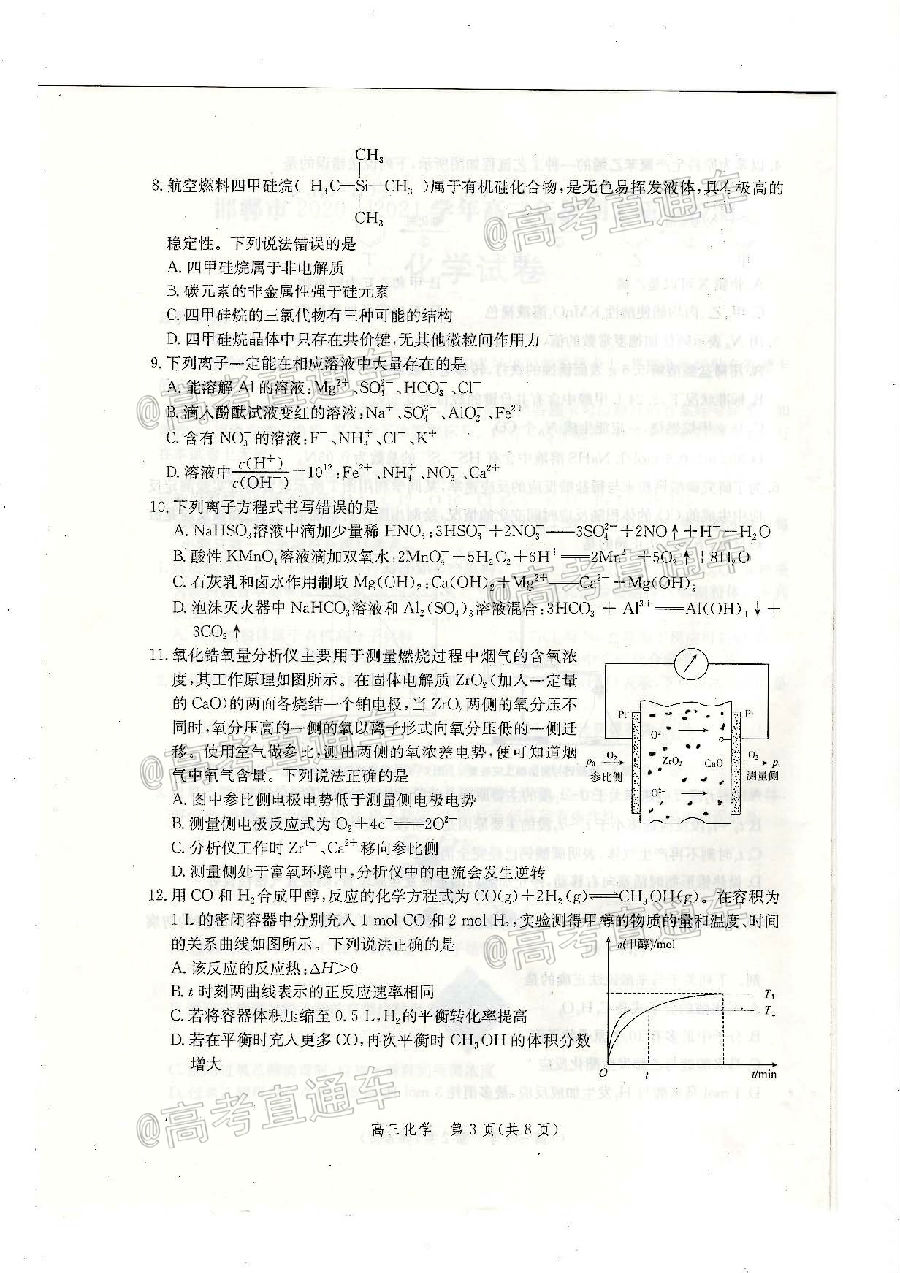 CH₃
8. 航空燃料四甲硅烷( H₃C—Si—CH₃ )属于有机硅化合物,是无色易挥发液体,具有极高的
CH₃
稳定性。下列说法错误的是
A. 四甲硅烷属于非电解质
B. 碳元素的非金属性强于硅元素
C. 四甲硅烷的三氯代物有三种可能的结构
D. 四甲硅烷晶体中只存在共价键,无其他微粒间作用力
9. 下列离子一定能在相应溶液中大量存在的是
A. 能溶解 Al 的溶液:Mg²⁺、SO₄²⁻、HCO₃⁻、Cl⁻
B. 滴入酚酞试液变红的溶液:Na⁺、SO₄²⁻、AlO₂⁻、Fe³⁺
C. 含有 NO₃⁻ 的溶液:F⁻、NH₄⁺、Cl⁻、K⁺
D. 溶液中 c(H⁺)/c(OH⁻)=10¹²:Fe²⁺、NH₄⁺、NO₃⁻、Ca²⁺
10. 下列离子方程式书写错误的是
A. NaHSO₃溶液中滴加少量稀 HNO₃:3HSO₃⁻+2NO₃⁻══3SO₄²⁻+2NO↑+H⁺+H₂O
B. 酸性 KMnO₄溶液滴加双氧水:2MnO₄⁻+5H₂O₂+6H⁺══2Mn²⁺+5O₂↑+8H₂O
C. 石灰乳和卤水作用制取 Mg(OH)₂:Ca(OH)₂+Mg²⁺══Ca²⁺+Mg(OH)₂
D. 泡沫灭火器中 NaHCO₃溶液和 Al₂(SO₄)₃溶液混合:3HCO₃⁻+Al³⁺══Al(OH)₃↓+
3CO₂↑
11. 氧化锆氧量分析仪主要用于测量燃烧过程中烟气的含氧浓
度,其工作原理如图所示。在固体电解质 ZrO₂(加入一定量
的 CaO)的两面各烧结一个铂电极,当 ZrO₂两侧的氧分压不
同时,氧分压高的一侧的氧以离子形式向氧分压低的一侧迁
移。使用空气做参比,测出两侧的氧浓差电势,便可知道烟
气中氧气含量。下列说法正确的是
A. 图中参比侧电极电势低于测量侧电极电势
B. 测量侧电极反应式为 O₂+4e⁻══2O²⁻
C. 分析仪工作时 Zr⁴⁺、Ca²⁺移向参比侧
D. 测量侧处于富氧环境中,分析仪中的电流会发生逆转
Pt
Pt
O²⁻
p₀ O₂
参比侧
ZrO₂
CaO
O₂ p
测量侧
O²⁻
12. 用 CO 和 H₂合成甲醇,反应的化学方程式为 CO(g)+2H₂(g)══CH₃OH(g)。在容积为
1 L 的密闭容器中分别充入 1 mol CO 和 2 mol H₂,实验测得甲醇的物质的量和温度、时间
的关系曲线如图所示。下列说法正确的是
A. 该反应的反应热:ΔH>0
B. t 时刻两曲线表示的正反应速率相同
C. 若将容器体积压缩至 0.5 L,H₂的平衡转化率提高
D. 若在平衡时充入更多 CO,再次平衡时 CH₃OH 的体积分数
增大
n(甲醇)/mol
T₁
T₂
O
t
t/min
高三化学 第 3 页(共 8 页)
@高考直通车
@高考直通车
@高考直通车
@高考直通车
@高考直通车
@高考直通车
@高考直通车